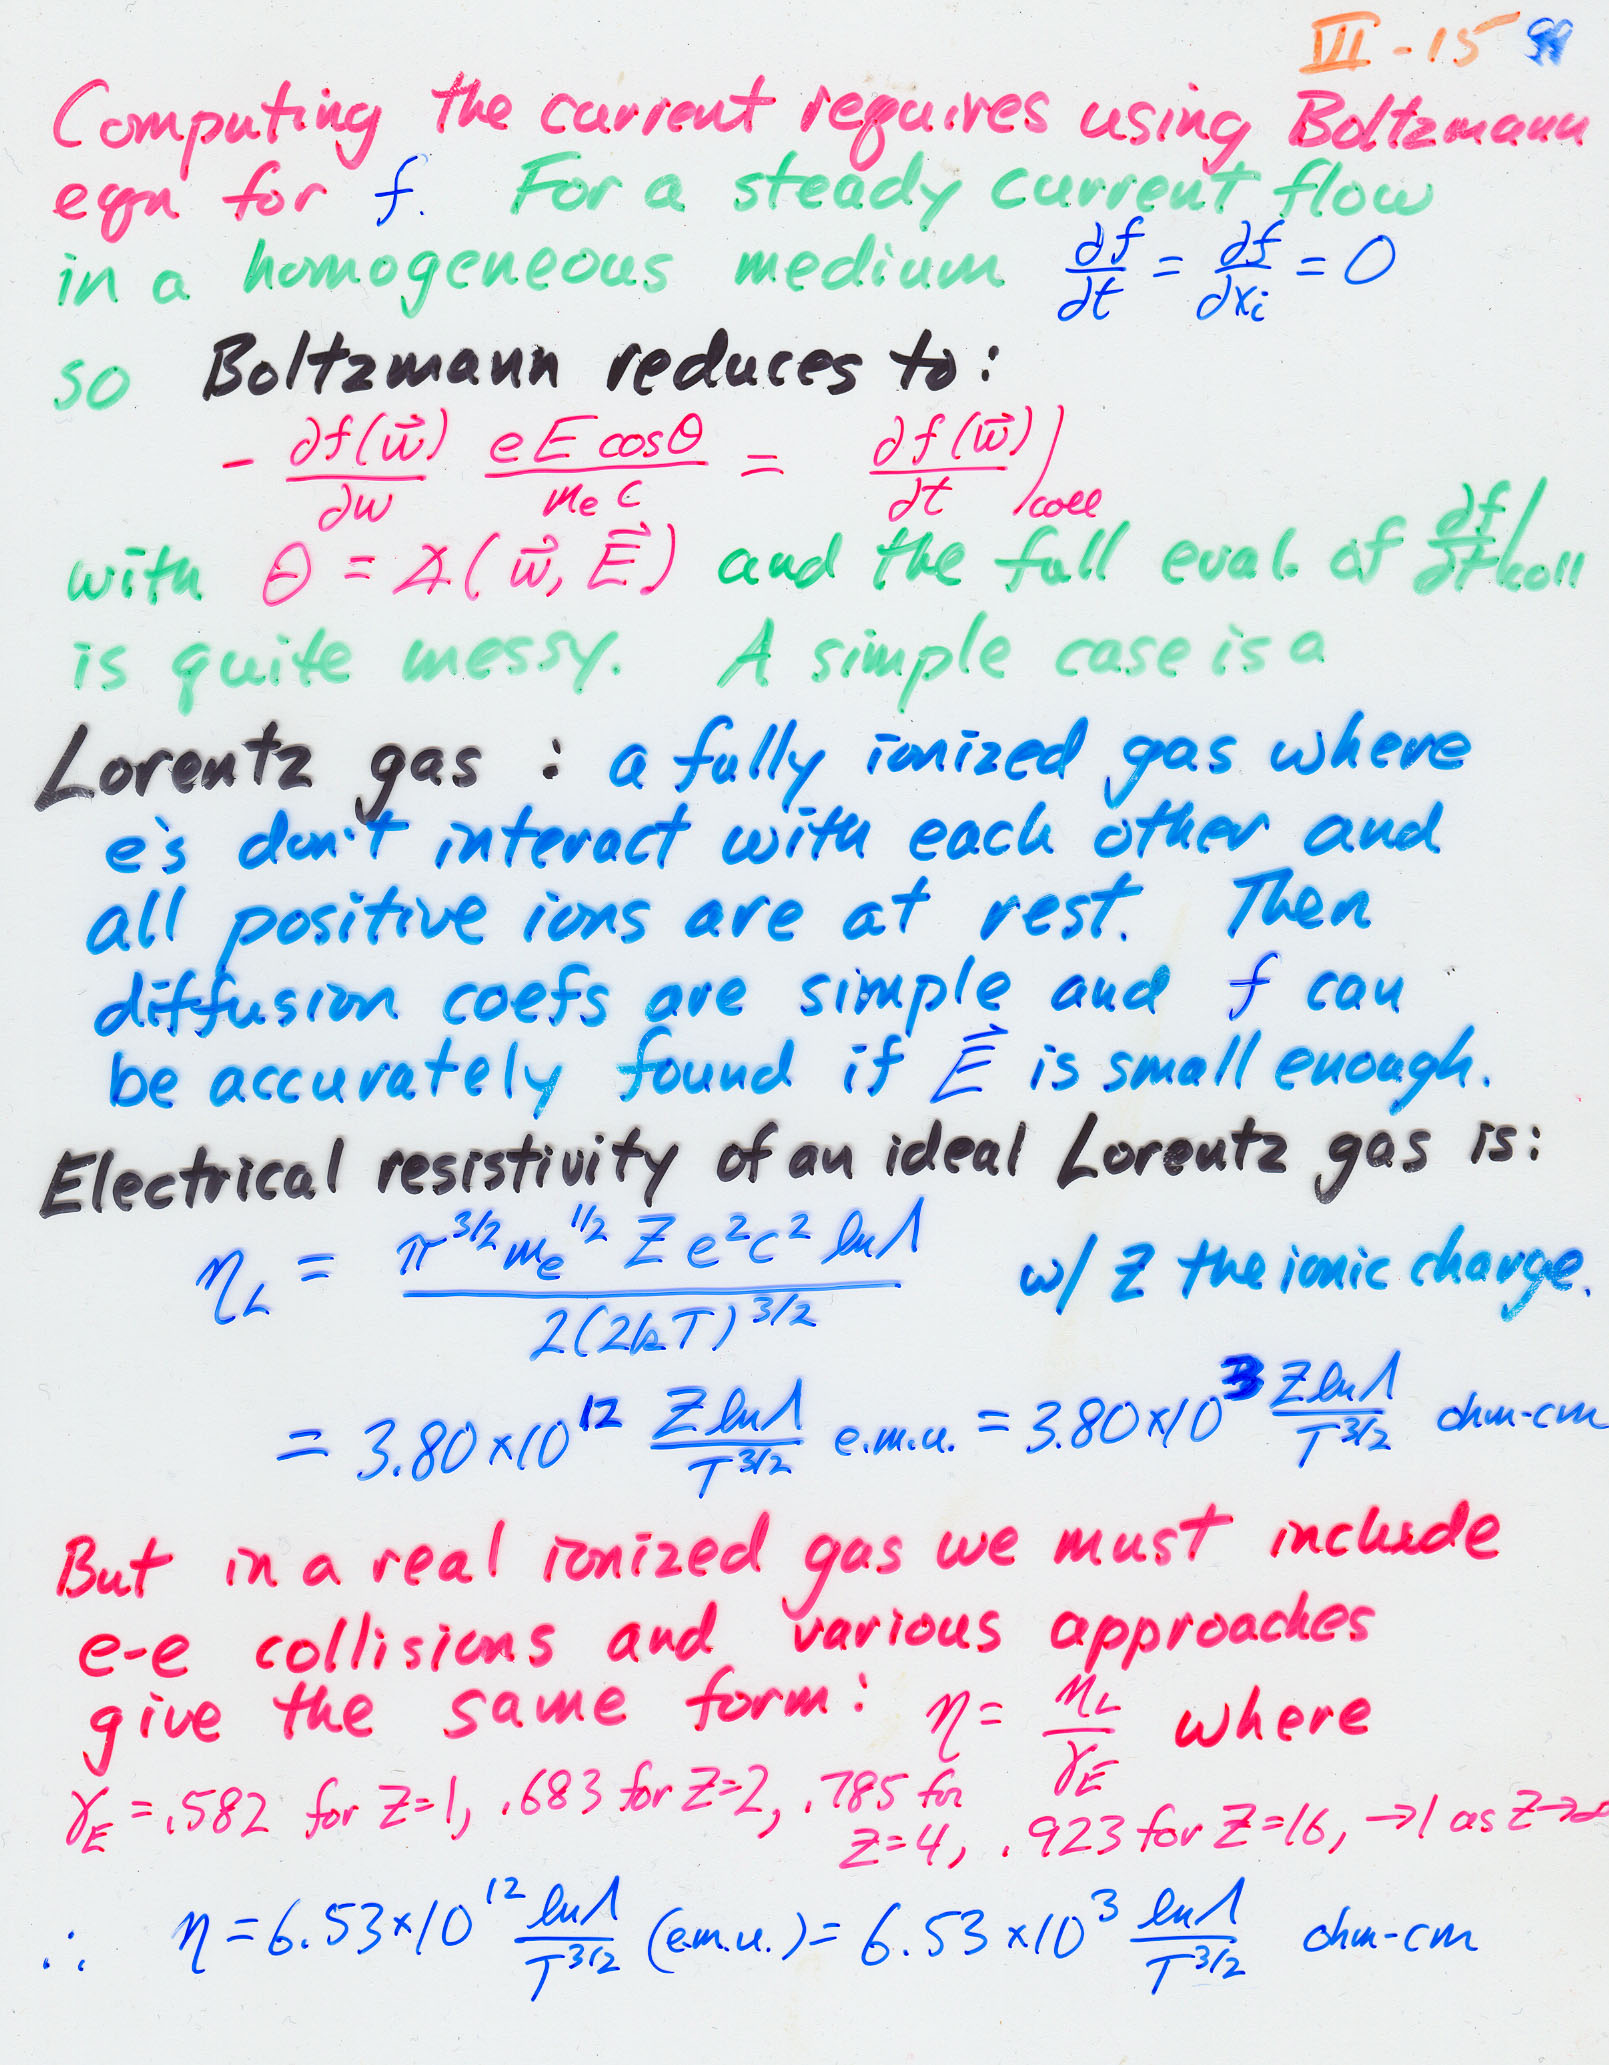 VII-15 99
Computing the current requires using Boltzmann
eqn for f. For a steady current flow
in a homogeneous medium ∂f/∂t = ∂f/∂xᵢ = 0
so Boltzmann reduces to:
- ∂f(w⃗)/∂w eE cosθ/mₑc = ∂f(w⃗)/∂t)coll
with θ = ∡(w⃗, E⃗) and the full eval. of ∂f/∂t)coll
is quite messy. A simple case is a
Lorentz gas : a fully ionized gas where
e's don't interact with each other and
all positive ions are at rest. Then
diffusion coefs are simple and f can
be accurately found if E⃗ is small enough.
Electrical resistivity of an ideal Lorentz gas is:
η_L = π^3/2 mₑ^1/2 Z e²c² lnΛ / 2(2kT)^3/2 w/ Z the ionic charge.
= 3.80×10¹² Z lnΛ/T^3/2 e.m.u. = 3.80×10³ Z lnΛ/T^3/2 ohm-cm
But in a real ionized gas we must include
e-e collisions and various approaches
give the same form: η = η_L/γ_E where
γ_E = .582 for Z=1, .683 for Z=2, .785 for
Z=4, .923 for Z=16, →1 as Z→∞
∴ η = 6.53×10¹² lnΛ/T^3/2 (e.m.u.) = 6.53×10³ lnΛ/T^3/2 ohm-cm